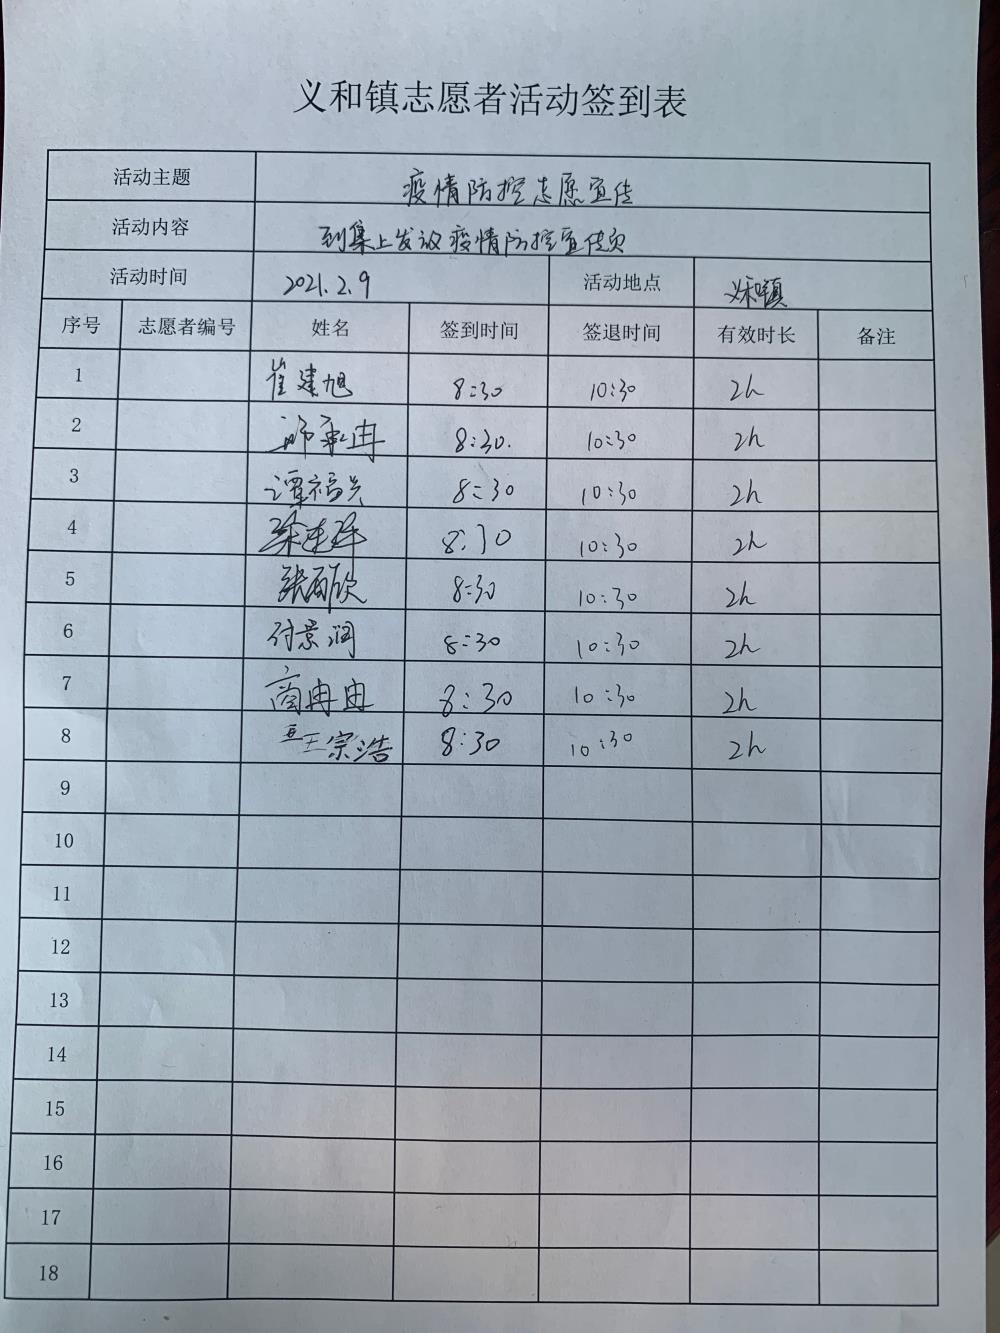 义和镇志愿者活动签到表
活动主题 疫情防控志愿宣传
活动内容 到集上发放疫情防控宣传页
活动时间 2021.2.9 活动地点 义和镇
序号 志愿者编号 姓名 签到时间 签退时间 有效时长 备注
1 崔建旭 8:30 10:30 2h
2 8:30. 10:30 2h
3 谭福兴 8:30 10:30 2h
4 8:30 10:30 2h
5 张丽欣 8:30 10:30 2h
6 付景润 8:30 10:30 2h
7 商冉冉 8:30 10:30 2h
8 王宗浩 8:30 10:30 2h
9
10
11
12
13
14
15
16
17
18